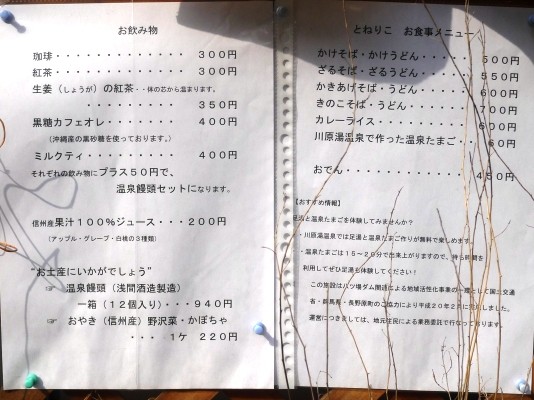 お飲み物
珈琲・・・・・・・・・・・・・・ ３００円
紅茶・・・・・・・・・・・・・・ ３００円
生姜（しょうが）の紅茶・・体の芯から温まります。
・・・・・・・・・・・・ ３５０円
黒糖カフェオレ・・・・・・・・ ４００円
（沖縄産の黒砂糖を使っております。）
ミルクティ・・・・・・・・・・ ４００円
それぞれの飲み物にプラス５０円で、
温泉饅頭セットになります。
信州産果汁１００％ジュース・・・２００円
（アップル・グレープ・白桃の３種類）
“お土産にいかがでしょう”
☞ 温泉饅頭（浅間酒造製造）
一箱（１２個入り）・・・９４０円
☞ おやき（信州産）野沢菜・かぼちゃ
・・・ １ケ ２２０円
とねりこ お食事メニュー
かけそば・かけうどん・・・・・ ５００円
ざるそば・ざるうどん・・・・・ ５５０円
かきあげそば・うどん・・・・・ ６００円
きのこそば・うどん・・・・・・ ７００円
カレーライス・・・・・・・・・ ６００円
川原湯温泉で作った温泉たまご・・ ６０円
おでん・・・・・・・・・・・・ ４５０円
【おすすめ情報】
足湯と温泉たまごを体験してみませんか？
・川原湯温泉では足湯と温泉たまご作りが無料で楽しめます。
・温泉たまごは１５～２０分で出来上がりますので、待ち時間を
利用してぜひ足湯も体験してください！
この施設は八ッ場ダム関連による地域活性化事業の一環として国土交通
省・群馬県・長野原町のご協力により平成２０年２月に完成しました。
運営につきましては、地元住民による業務委託で行なっております。